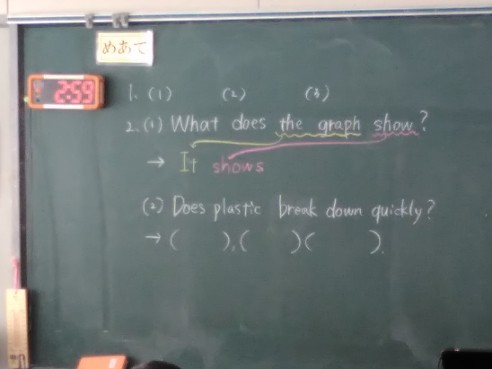 めあて
2:59
1. (1) (2) (3)
2. (1) What does the graph show?
→ It shows
(2) Does plastic break down quickly?
→ ( ), ( ) ( ).